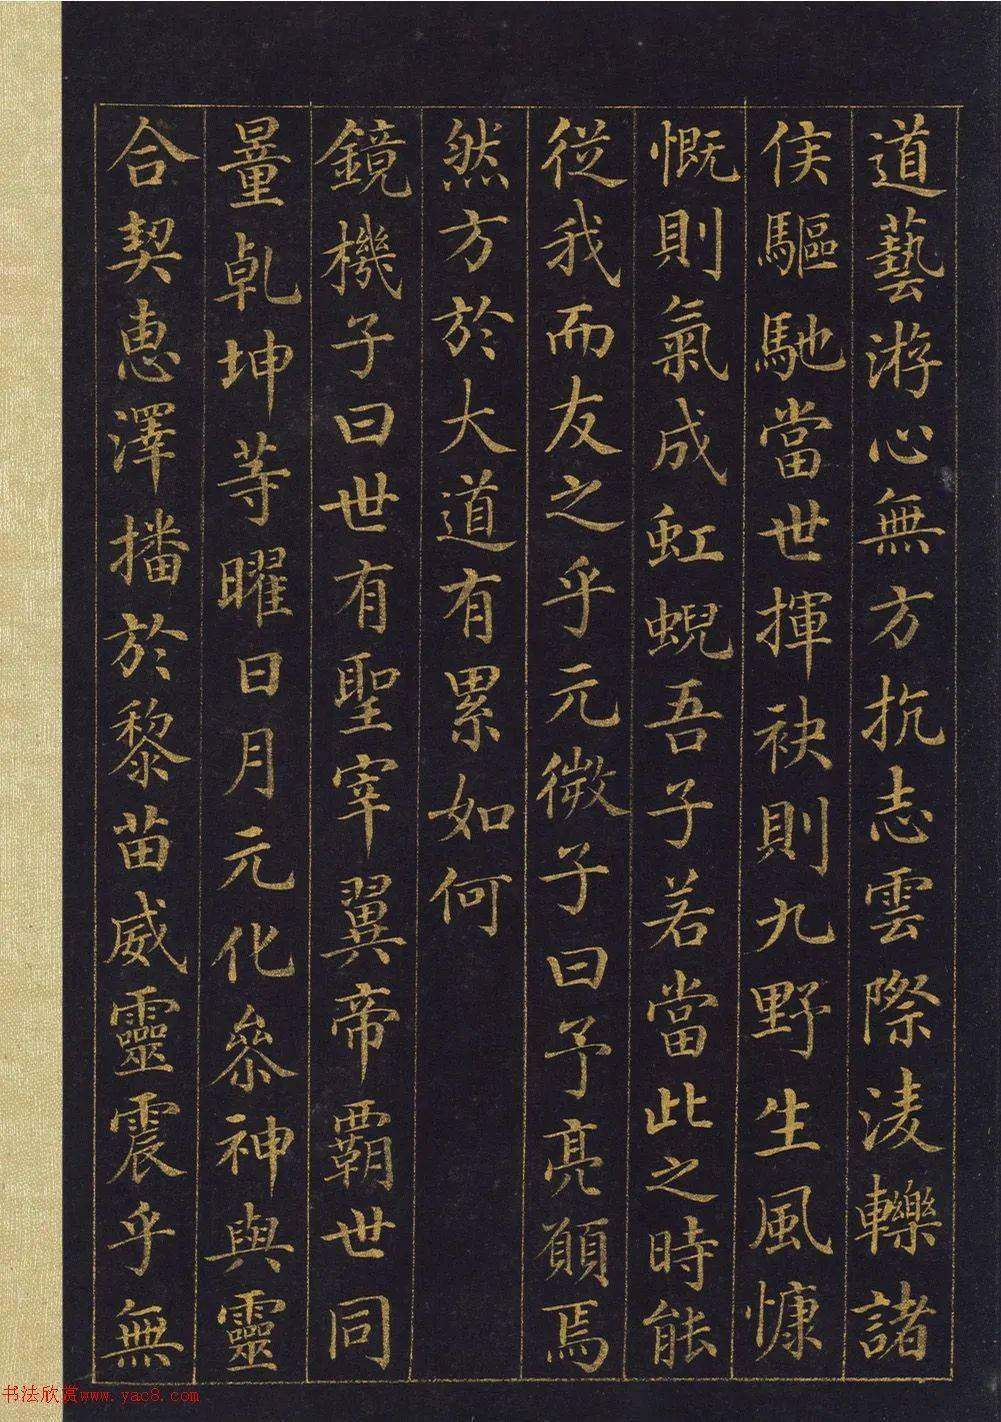 道藝游心無方抗志雲際淩轢諸
侯驅馳當世揮袂則九野生風慷
慨則氣成虹蜺吾子若當此之時能
從我而友之乎元微子曰予亮願焉
然方於大道有累如何
鏡機子曰世有聖宰翼帝霸世同
量乾坤等曜日月元化參神與靈
合契惠澤播於黎苗威靈震乎無
书法欣赏www.yac8.com